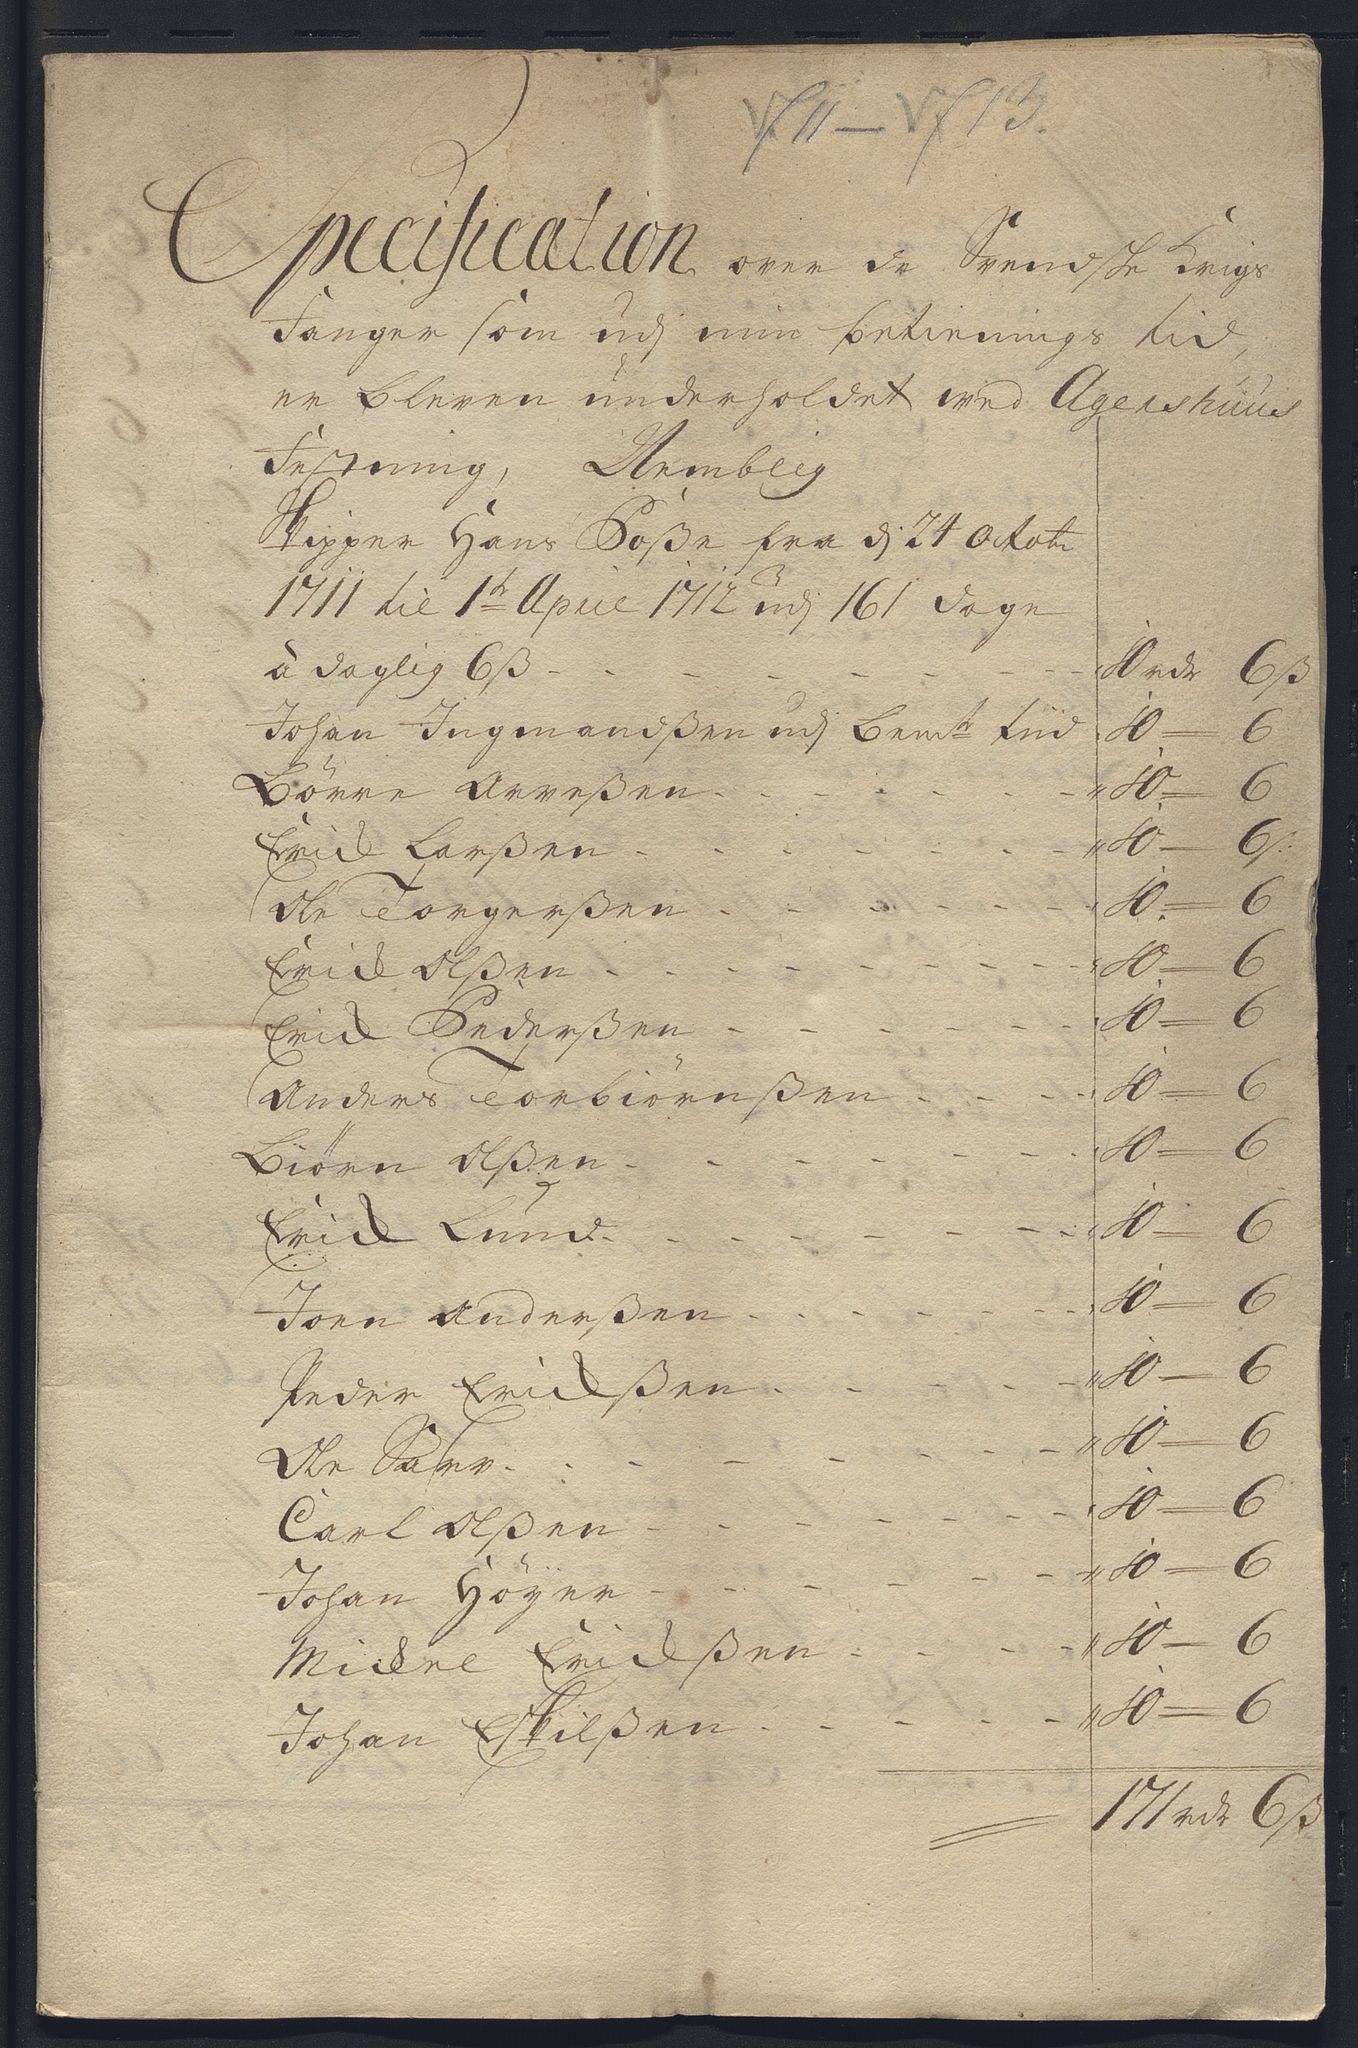 Vf 11 — Vf 13.
Specification over de Svendske Krigs
Fanger som udj min betienings tid,
er bleven underholdet wed Agershuus
Festning, Nemblig
Skipper Hans Poße fra dj 24 octobr
1711 til 1te April 1712 udj 161 dage
à daglig 6ß - - - - - - - 10 rdr 6ß
Johan Ingmandßen udj bemte tiid 10 — 6
Börre Arveßen - - - - - - 10 — 6
Erick Larßen - - - - - - 10 — 6
Ole Torgerßen - - - - - - 10 — 6
Erick Olßen - - - - - - 10 — 6
Erick Pederßen - - - - - - 10 — 6
Anders Torbiörnßen - - - - 10 — 6
Biörn Olßen - - - - - - 10 — 6
Erick Lund - - - - - - 10 — 6
Joen Anderßen - - - - - - 10 — 6
Peder Erickßen - - - - - 10 — 6
Ole - - - - - - 10 — 6
Carl Olßen - - - - - - 10 — 6
Johan Höyer - - - - - - 10 — 6
Mickel Erickßen - - - - 10 — 6
Johan Eskilßen - - - - - 10 — 6
171 rdr 6ß